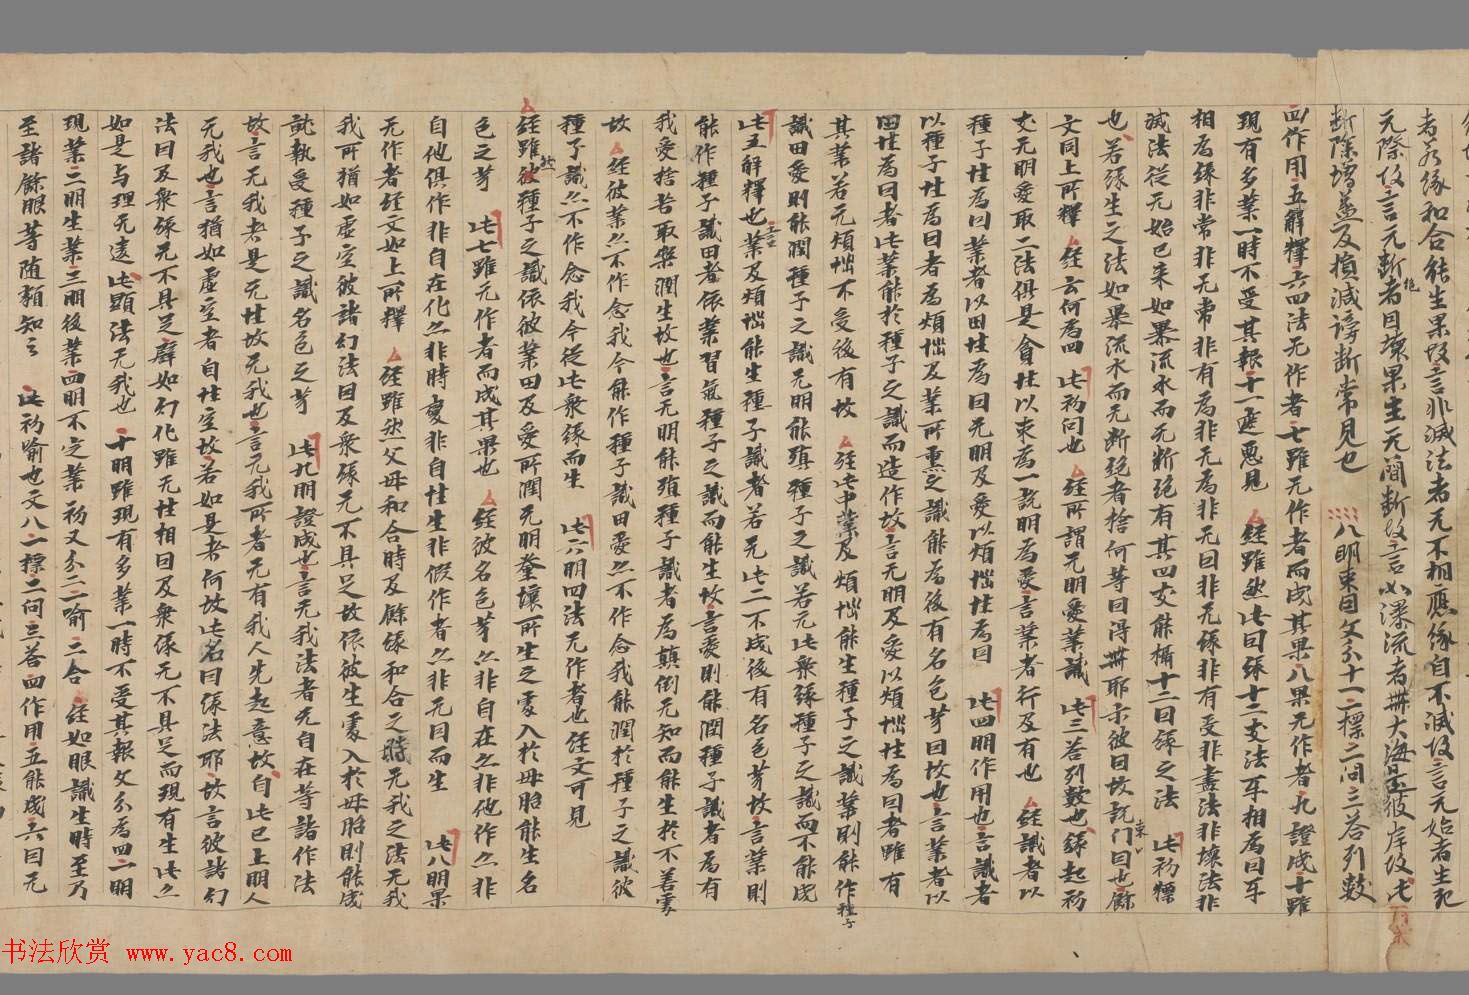 者名緣和合能生果故言非滅法者无不相應緣自不滅故言无始者生死
元際故言无斷絶者因壞果生无簡斷故言如瀑流者無大海至彼岸故此
斷除增益及損減謗斷常見也 八明束因文分十一一標二問三答列數
四作用五解釋六四法无作者七雖无作者而成其果八果无作者九證成十雖
現有多業一時不受其報十一遮惡見 經雖然此因緣十二支法互相爲因互
相爲緣非常非无常非有爲非无爲非无因非无緣非有受非盡法非壞法非
滅法從无始已來如暴流水而无斷絕有其四支能攝十二因緣之法 此初標
也若緣生之法如暴流水而无斷絕者捨何等因得無耶示彼因故説束門因也餘
文同上所釋 經云何爲四 此初問也 經所謂无明愛業識 此三答列數也緣起初
支无明愛取二法俱是貪性以束爲一説明爲愛言業者行及有也 經識者以
種子性爲因業者以田性爲因无明及愛以煩惱性爲因 此四明作用也言識者
以種子性爲因者爲煩惱及業所熏之識能爲後有名色芽因故也言業者以
田性爲因者此業能於種子之識而造作故言无明及愛以煩惱性爲因者雖有
其業若无煩惱不受後有故 經此中業及煩惱能生種子之識業則能作種子
識田愛則能潤種子之識无明能殖種子之識若无此衆緣種子之識而不能成
此五解釋也言業及煩惱能生種子識者若无此二不成後有名色芽故言業則
能作種子識田者依業習氣種子之識而能生故言愛則能潤種子識者爲有
我愛捨苦取樂潤生故也言无明能殖種子識者爲顛倒无知而能生於不善處
故 經彼業亦不作念我今能作種子識田愛亦不作念我能潤於種子之識彼
種子識亦不作念我今從此衆緣而生 此六明四法元作者也經文可見
經雖然彼種子之識依彼業田及愛所潤无明糞壤所生之處入於母胎能生名
色之芽 此七雖元作者而成其果也 經彼名色芽亦非自在亦非他作亦非
自他俱作非自在化亦非時變非自性生非假作者亦非元因而生 此八明果
无作者經文如上所釋 經雖然父母和合時及餘緣和合之時元我之法无我
我所猶如虛空彼諸幻法因及衆緣元不具足故依彼生處入於母胎則能成
就執受種子之識名色之芽 此九明證成也言元我法者元自在等諸作法
故言无我者是元性故元我也言元我所者无有我人先起意故自此已上明人
元我也言猶如虛空者自性空故若如是者何故此名因緣法耶故言彼諸幻
法因及衆緣元不具足譬如幻化雖元性相因及衆緣元不具足而現有生此亦
如是与理无違此顯法无我也 十明雖現有多業一時不受其報文分爲四一明
現業二明生業三明後業四明不定業初又分二一喻二合 經如眼識生時至乃
至諸餘眼等随類知之 此初喻也文八一標二問三答四作用五能成六因元
书法欣赏 www.yac8.com